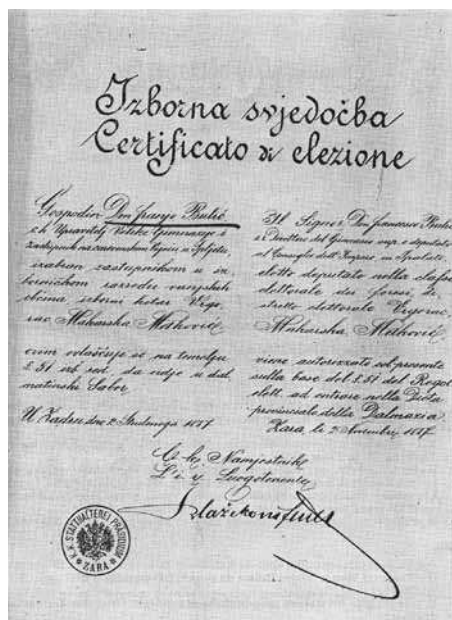 Izborna svjedočba
Certificato di elezione
Gospodin Don Franjo Bulić
c. k. Upravitelj Velike Gimnazije i
zastupnik na carevinskom Vijeću u Spljetu,
izabran zastupnikom u iz-
borničkom razredu vanjskih
obćina izborni kotar Vrgo-
rac, Makarska Metković
ovim ovlašćuje se na temelju
§. 51 izb. red. da udje u dal-
matinski Sabor.
U Zadru dne 2. Studenoga 1887
Il Signor Don Francesco Bulić
i. r. Direttore del Ginnasio sup. e deputato
al Consiglio dell' Impero, in Spalato,
eletto deputato nella classe
elettorale dei foresi, di-
stretto elettorale Vrgorac,
Makarska Metković
viene autorizzato col presente
sulla base del §. 51 del Regol.
elett. ad entrare nella Dieta
provinciale della Dalmazia.
Zara, li 2 Novembre 1887.
C. k. Namjestnik
L' i. r. Luogotenente
K. K. STATTHALTEREI PRÄSIDIUM
ZARA